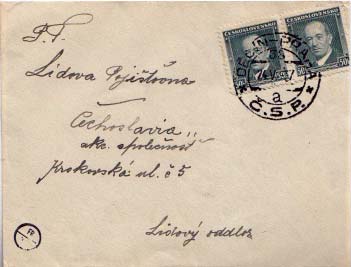 P. T.
Lidova Pojišťovna
"Čechoslavia"
akc. společnosť
Krakovská ul. č 5
Lidový
ČESKOSLOVENSKO
ČESKOSLOVENSKO
50
50
a
Č.S.P.